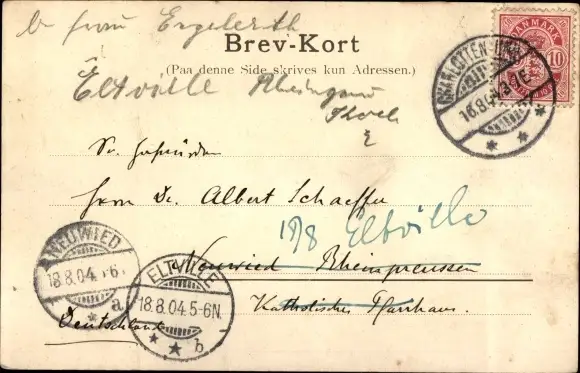 b frau
Brev-Kort
(Paa denne Side skrives kun Adressen.)
Eltville Rheingau
DANMARK
10
CHARLOTTENLUND
16.8.04
Herrn Dr. Albert Schaeffer
18/8 Eltville
Neuwied Rheinpreussen
Katholisches Pfarrhaus.
Deutschland
NEUWIED
18.8.04.
a
ELTVILLE
18.8.04.5-6N.
b